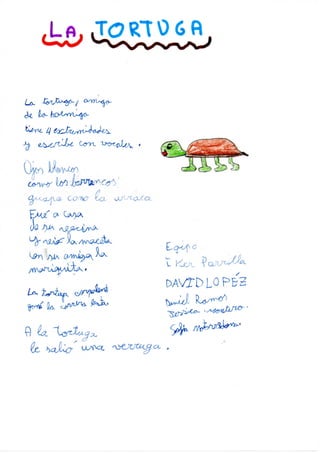 LA TORTUGA
La tortuga, amiga
de la hormiga
tiene 4 extremidades
y escribe con vocales.
Ojos blancos
como los barrancos
guapa como la urraca
Fue a casa
de su vecina
y regó la maceta
con su amiga la
mariquita.
La tortuga
ganó la carrera lenta.
A la Tortuga
le salió una verruga.
Equipo
Iker Parrilla
DAVID LOPEZ
Daniel Ramos
Jessica
Sofía